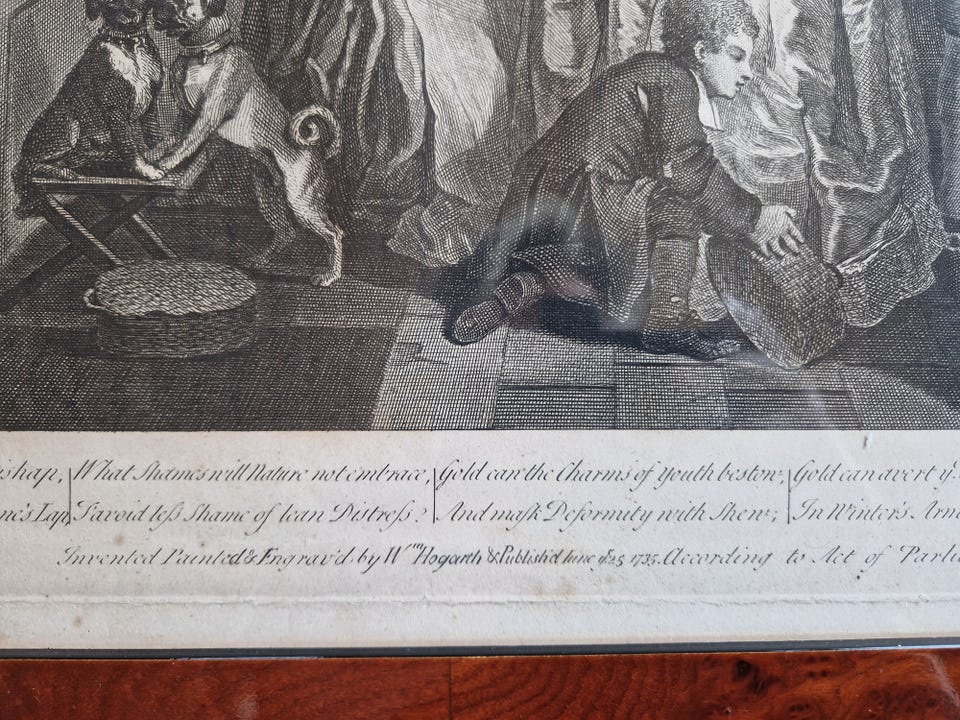 What Shames will Nature not embrace, Gold can the Charms of Youth bestow, Gold can avert
T'avoid less Shame of lean Distress? And mask Deformity with Shew; In Winter's
Invented Painted & Engrav'd by Wm. Hogarth & Publish'd June ye. 25. 1735. According to Act of